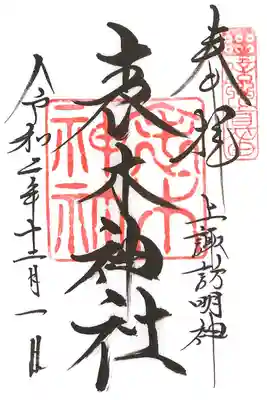 奉拝
上諏訪明神
表木神社
令和二年十二月一日
表木
神社